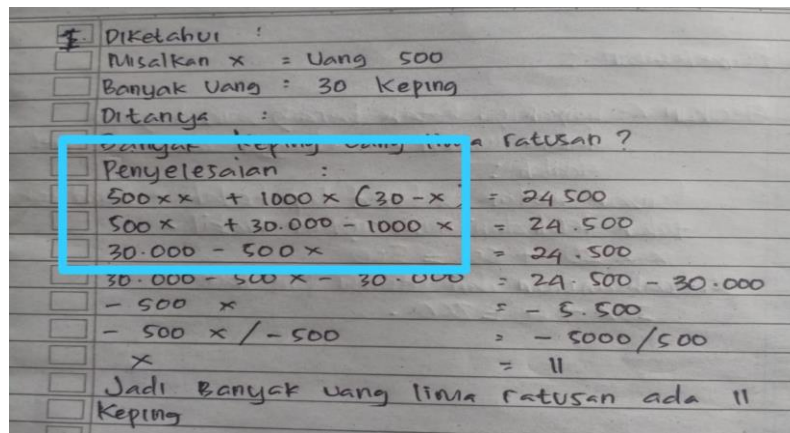 1. Diketahui :
Misalkan x = Uang 500
Banyak Uang : 30 Keping
Ditanya :
Banyak keping uang lima ratusan?
Penyelesaian :
500 x x + 1000 x (30 - x) = 24 500
500 x + 30.000 - 1000 x = 24.500
30.000 - 500 x = 24.500
30.000 - 500 x - 30.000 = 24.500 - 30.000
- 500 x = - 5.500
- 500 x / - 500 = - 5000/500
x = 11
Jadi Banyak uang lima ratusan ada 11
Keping